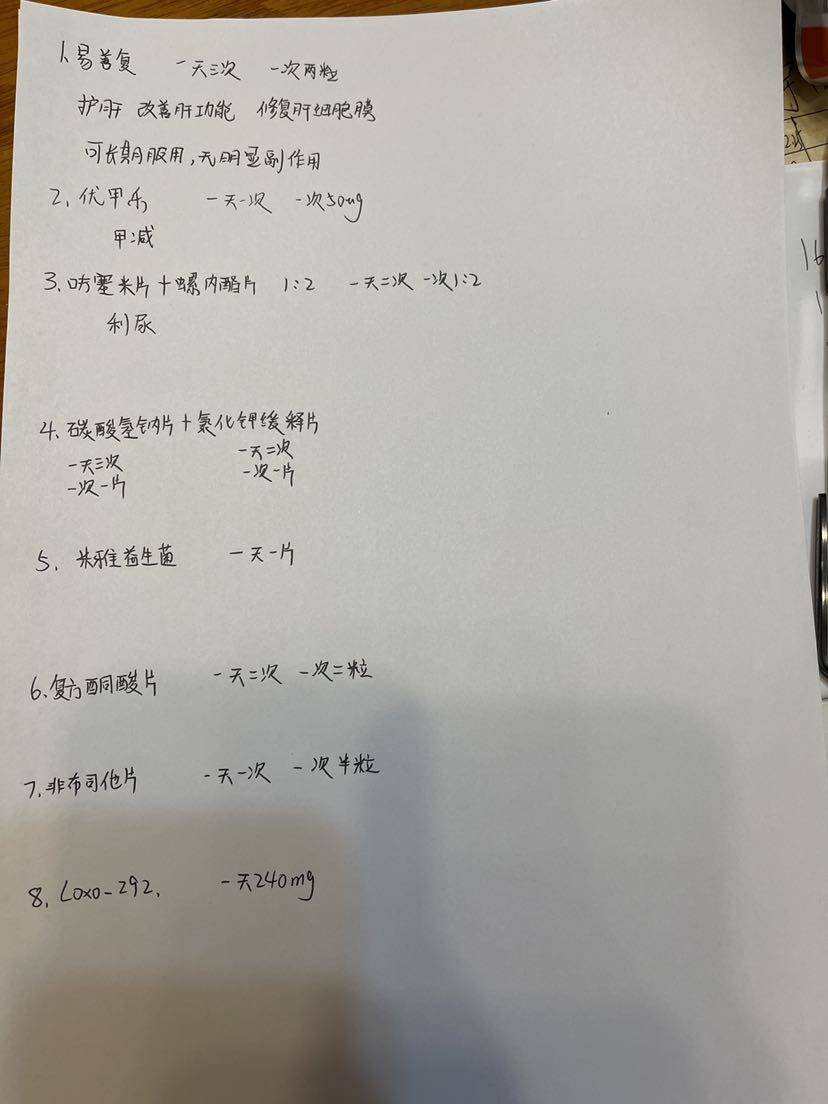 1.易善复 一天三次 一次两粒
护肝 改善肝功能 修复肝细胞膜
可长期服用,无明显副作用
2.优甲乐 一天一次 一次50ug
甲减
3.呋塞米片+螺内酯片 1:2 一天二次 一次1:2
利尿
4.碳酸氢钠片+氯化钾缓释片
一天三次 一天二次
一次一片 一次一片
5.米雅益生菌 一天一片
6.复方酮酸片 一天二次 一次二粒
7.非布司他片 一天一次 一次半粒
8.Loxo-292. 一天240mg
16